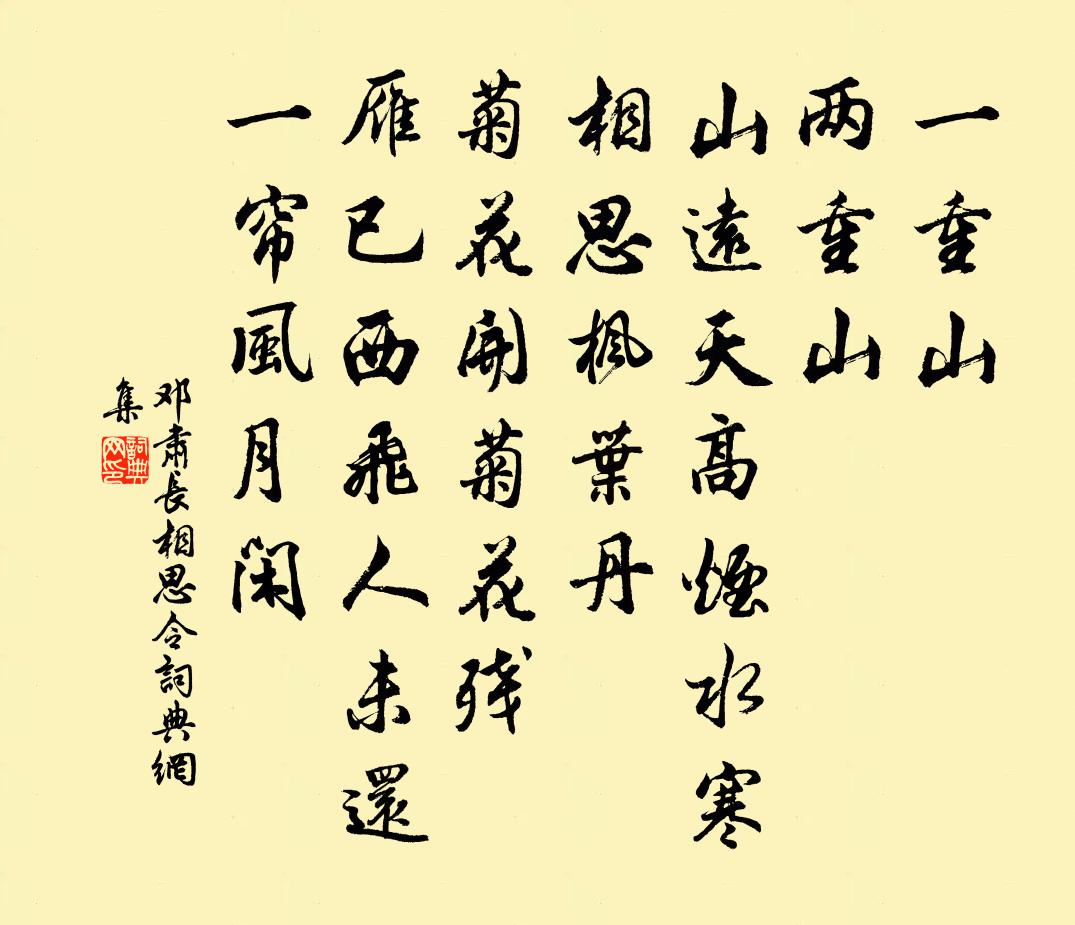 一重山
两重山
山遠天高煙水寒
相思楓葉丹
菊花開菊花残
雁已西飛人未還
一帘風月閑
邓肅長相思令詞典網
集
詞典網印